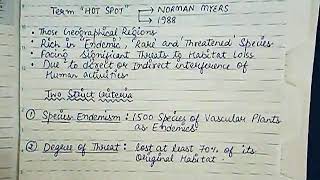 Term "HOT SPOT" → NORMAN MYERS
→ 1988
• Those Geographical Regions
• Rich in 'Endemic', 'Rare' and 'Threatened' Species
• Facing Significant Threats to Habitat Loss
• Due to direct or Indirect interference of
Human activities
Two Strict Criteria
① Species Endemism : 1500 Species of Vascular Plants
as Endemics
② Degree of Threat : lost at least 70% of its
Original Habitat